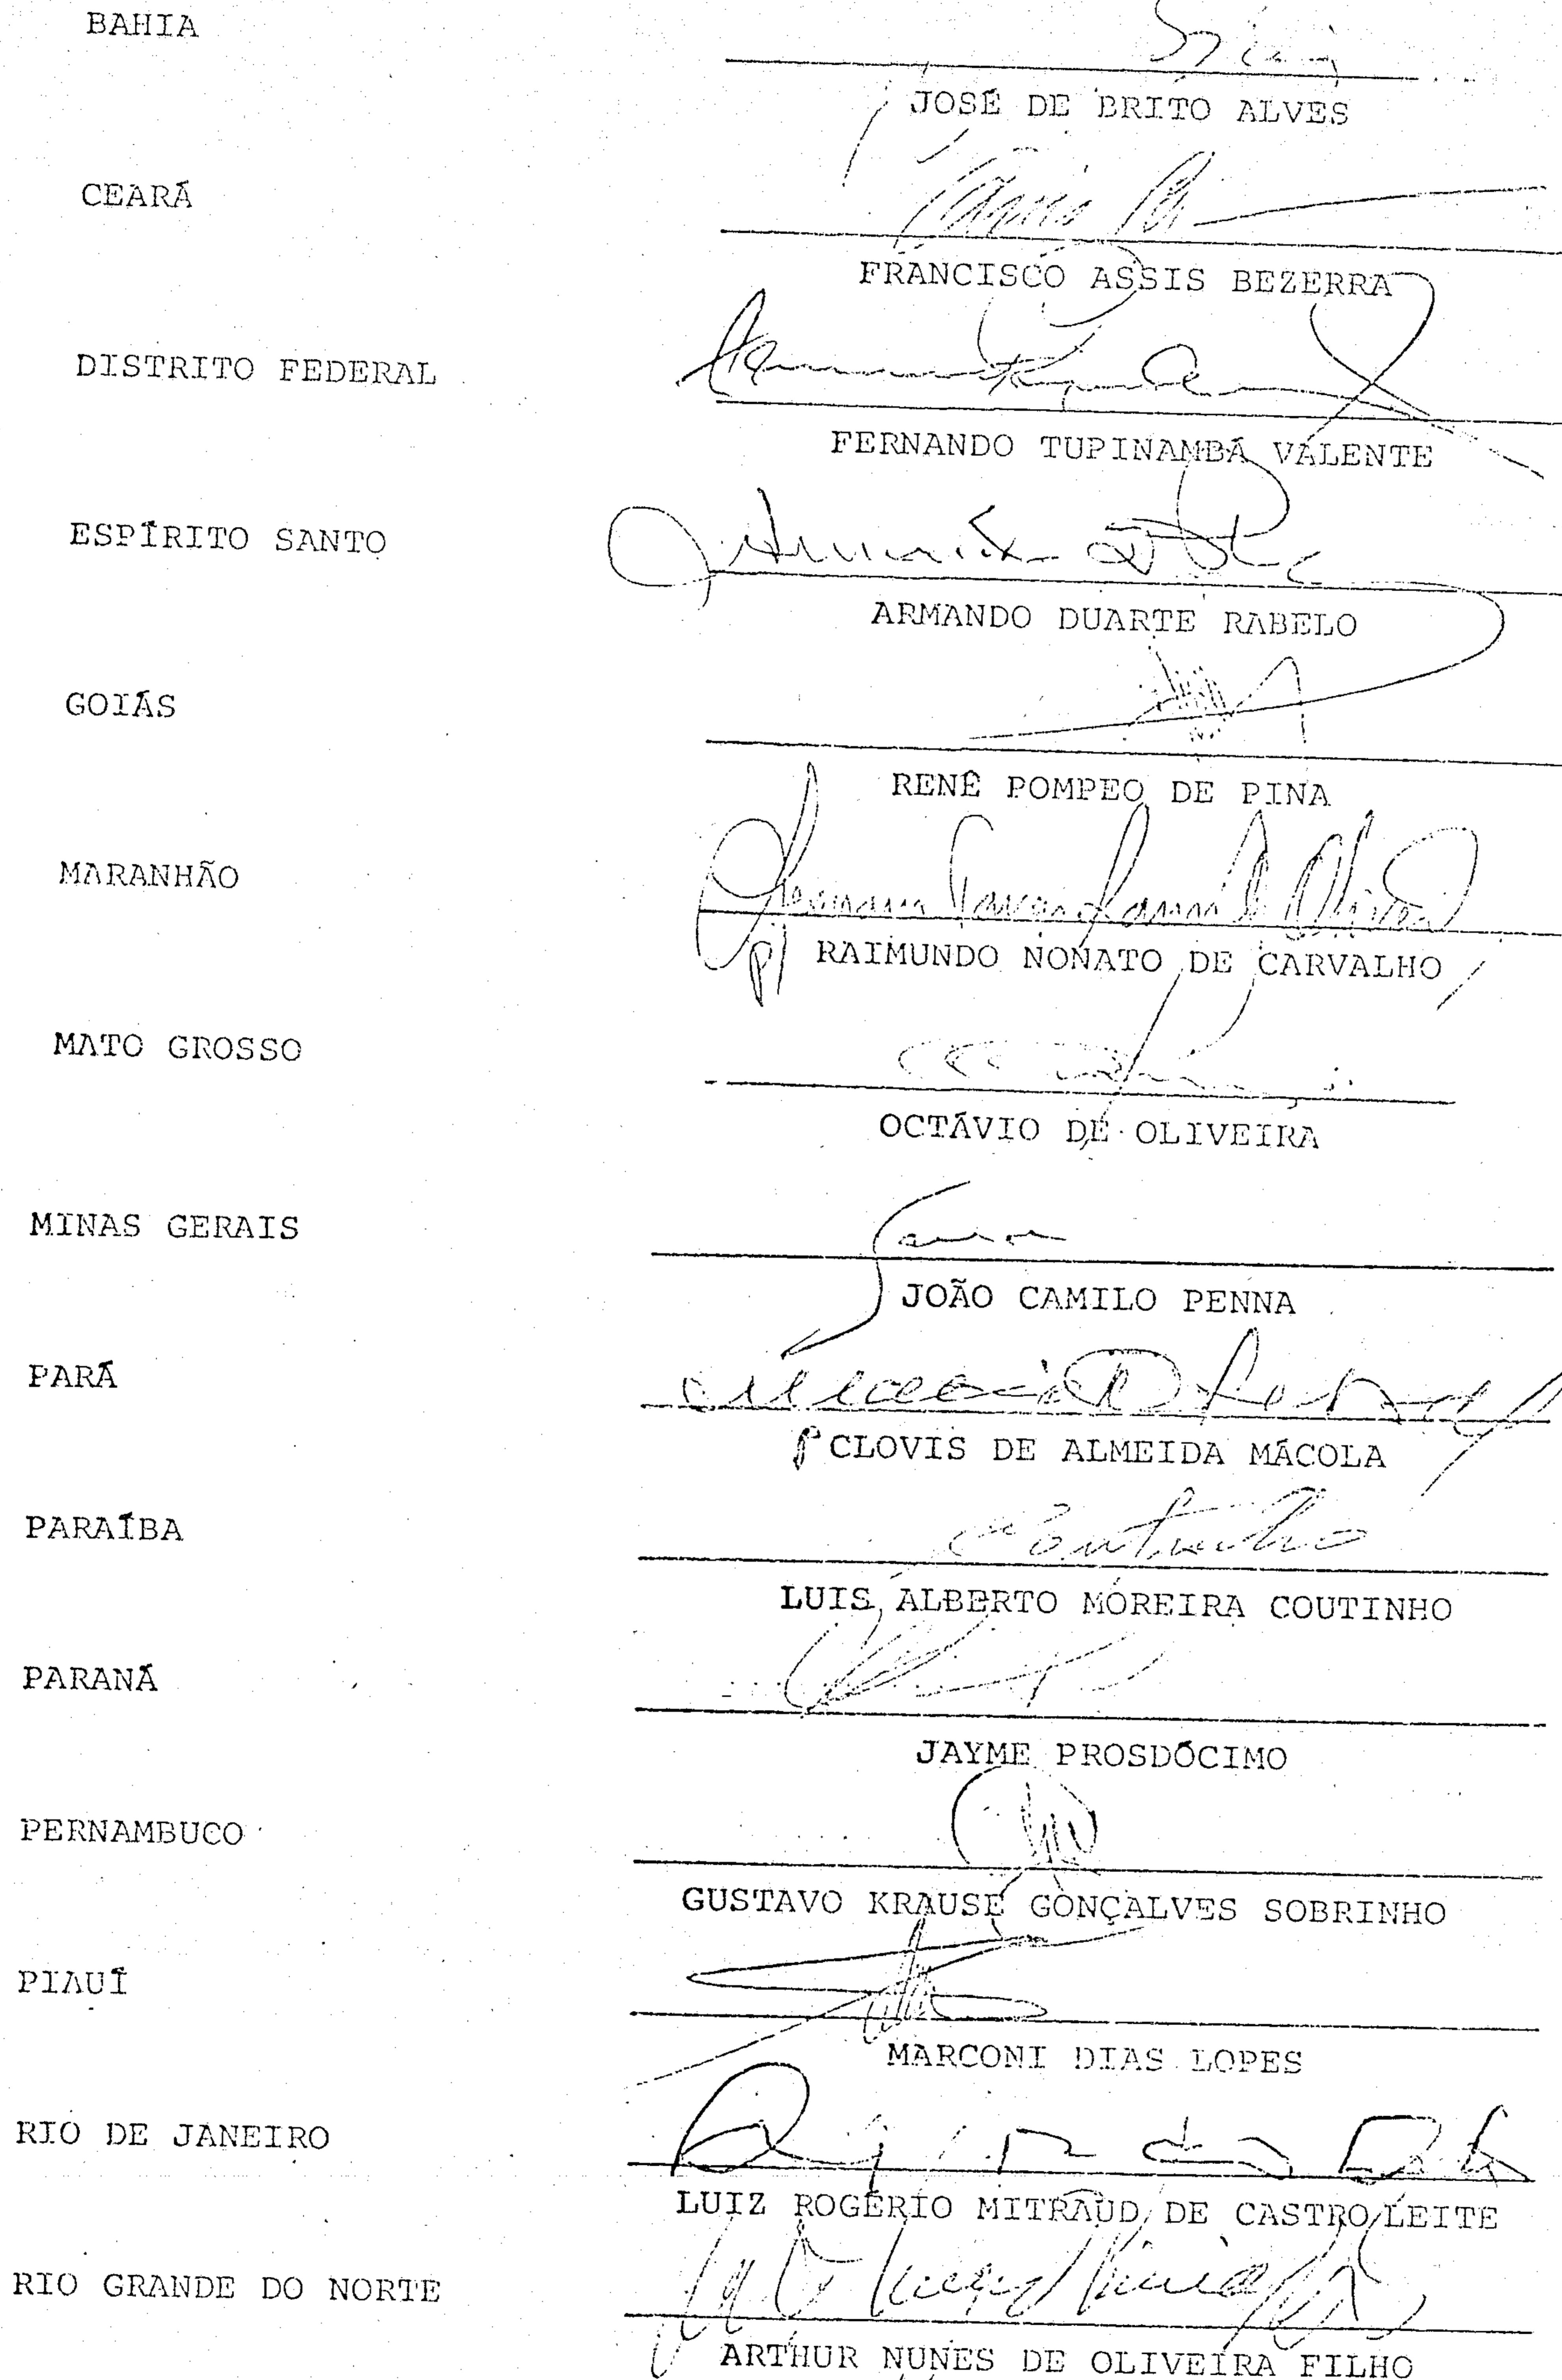 BAHIA
JOSÉ DE BRITO ALVES
CEARÁ
FRANCISCO ASSIS BEZERRA
DISTRITO FEDERAL
FERNANDO TUPINAMBÁ VALENTE
ESPÍRITO SANTO
ARMANDO DUARTE RABELO
GOIÁS
RENÊ POMPEO DE PINA
MARANHÃO
p/ RAIMUNDO NONATO DE CARVALHO
MATO GROSSO
OCTÁVIO DE OLIVEIRA
MINAS GERAIS
JOÃO CAMILO PENNA
PARÁ
P CLOVIS DE ALMEIDA MÁCOLA
PARAÍBA
Coutinho
LUIS ALBERTO MOREIRA COUTINHO
PARANÁ
JAYME PROSDÓCIMO
PERNAMBUCO
GUSTAVO KRAUSE GONÇALVES SOBRINHO
PIAUÍ
MARCONI DIAS LOPES
RIO DE JANEIRO
LUIZ ROGÉRIO MITRAUD DE CASTRO LEITE
RIO GRANDE DO NORTE
ARTHUR NUNES DE OLIVEIRA FILHO